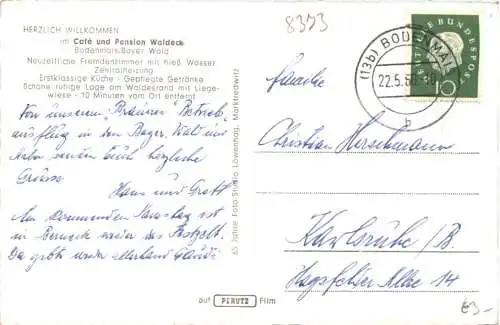 HERZLICH WILLKOMMEN
im Café und Pension Waldeck
Bodenmais-Bayer. Wald
Neuzeitliche Fremdenzimmer mit fließ. Wasser
Zentralheizung
Erstklassige Küche - Gepflegte Getränke
Schöne ruhige Lage am Waldesrand mit Liege-
wiese - 10 Minuten vom Ort entfernt
Von unserem "Brauerei" Betriebs-
ausflug in den Bayer. Wald
senden Euch herzliche
Grüsse
Hans und Gretl
Am kommenden Samstag ist
in Berneck wieder das Festzelt.
Da gibts wieder allerhand Gaudi
65 Jahre Foto Studio Löwenhag, Marktredwitz
auf PERUTZ Film
8373
(13b) BODENMAIS
22.5.60
b
DEUTSCHE BUNDESPOST
10
Familie
Christian Herschmann
Karlsruhe/B.
Hagsfelder Allee 14
€3,-